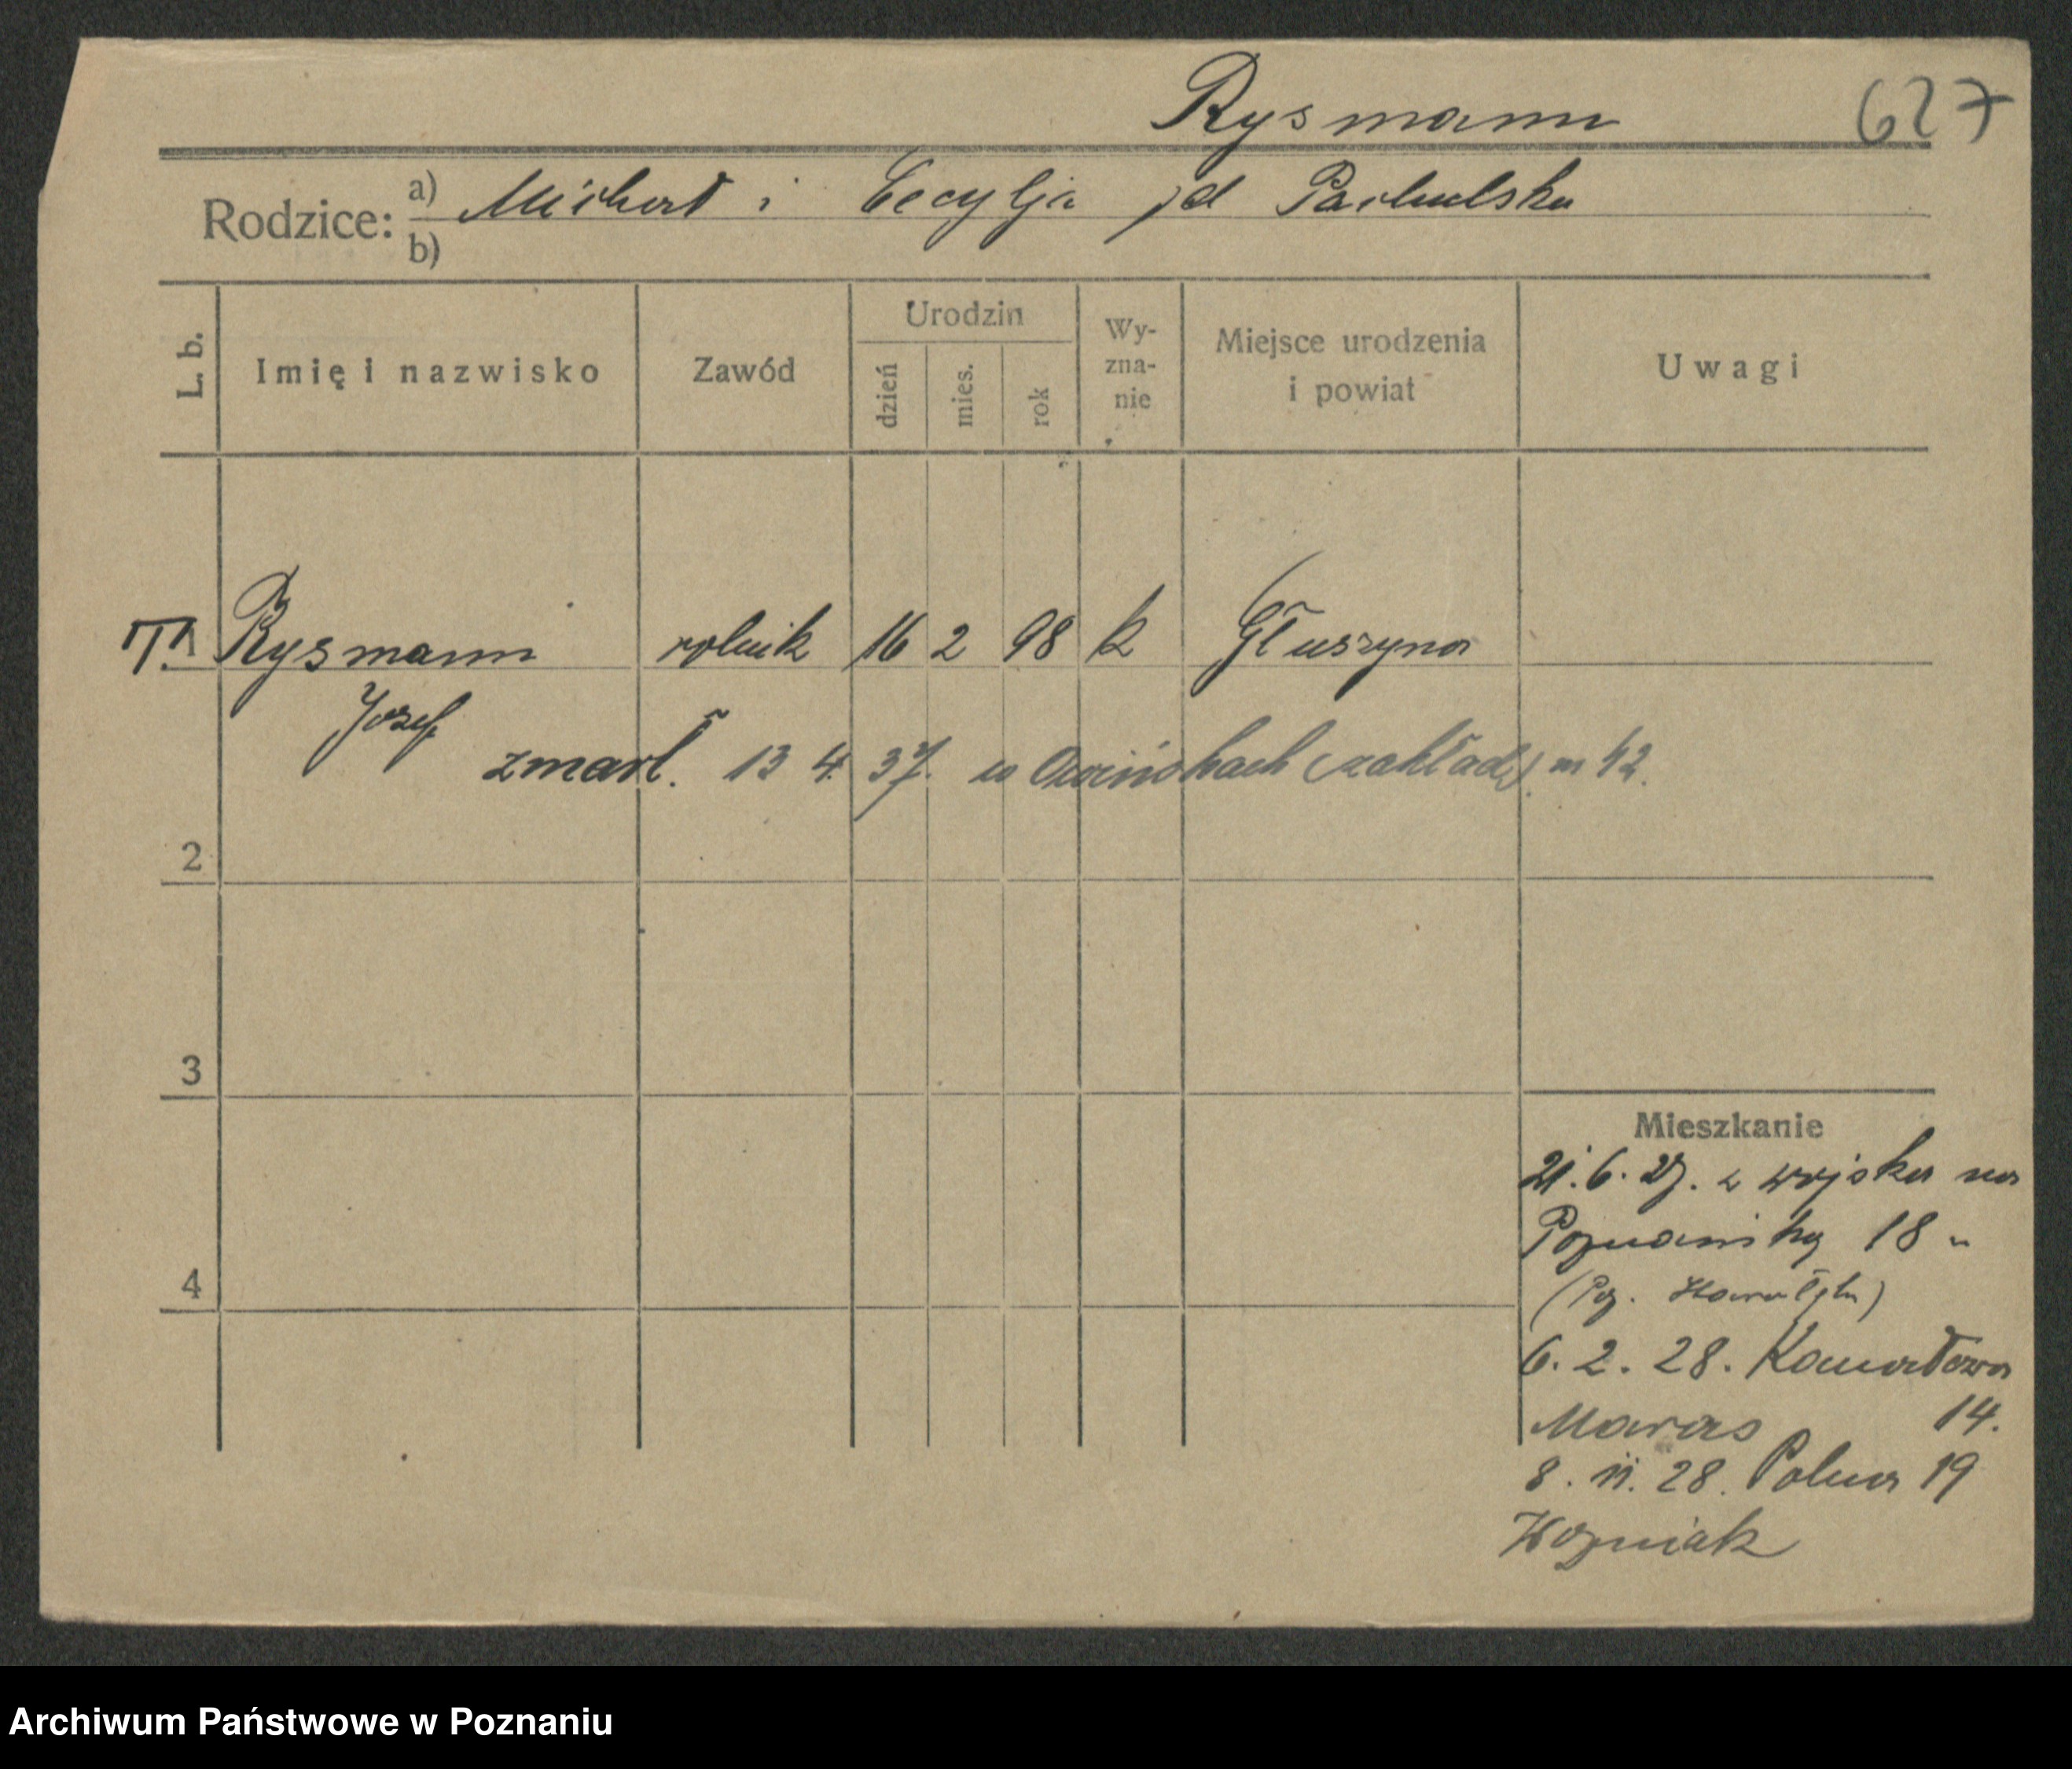 Rysmann 627
Rodzice: a) Michał i Cecylja zd Pachulska
b)
L. b. Imię i nazwisko Zawód Urodzin dzień mies. rok Wy-zna-nie Miejsce urodzenia i powiat Uwagi
Rysmann rolnik 16 2 98 k Głuszyna
Józef
zmarł. 13 4. 37. w Owińskach (zakład) 42.
2
3
4
Mieszkanie
21. 6. 27. z wojska na
Poznański 18
(Pozn.
6. 2. 28. Komorowa
Maras 14.
8. 11. 28. Polna 19
Woźniak
Archiwum Państwowe w Poznaniu